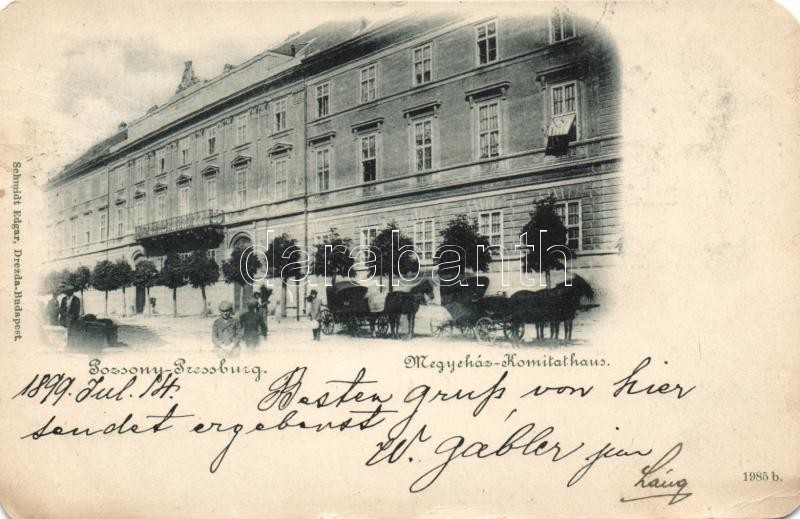 Schmidt Edgar, Drezda-Budapest.
darabanth
Pozsony-Pressburg.
Megyeház-Komitathaus.
1899 Jul. 14. Besten gruß von hier
sendet ergebenst
W. Gábler jun
Láng
1985 b.